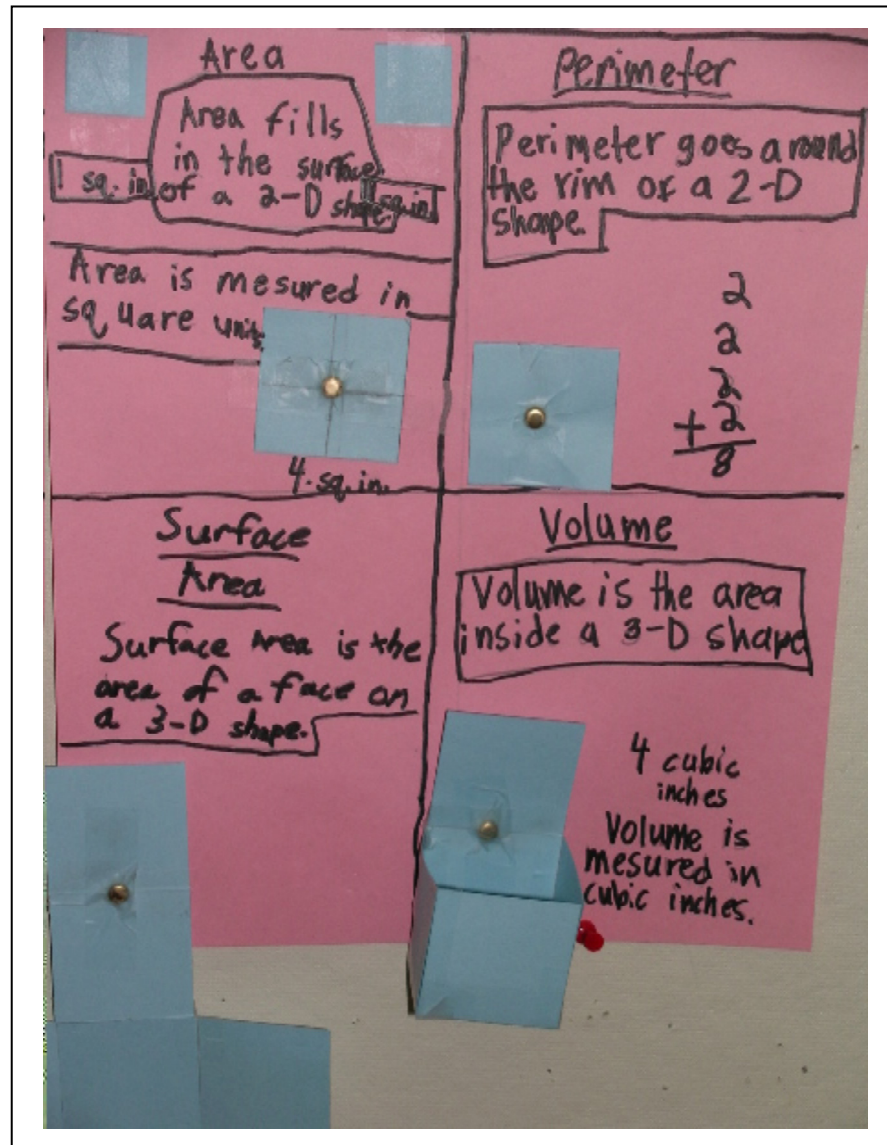 Area
Area fills
in the surface
of a 2-D shape.
1 sq. in.
1 sq. in.
Area is mesured in
square units.
4 sq. in.
Perimeter
Perimeter goes around
the rim of a 2-D
shape.
2
2
2
+ 2
8
Surface
Area
Surface Area is the
area of a face on
a 3-D shape.
Volume
Volume is the area
inside a 3-D shape
4 cubic
inches
Volume is
mesured in
cubic inches.